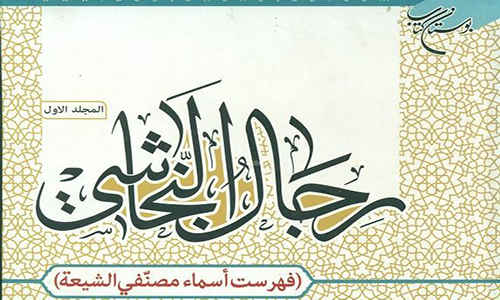 بوستان کتاب
المجلد الاول
رجال النجاشي
(فهرست أسماء مصنّفي الشيعة)